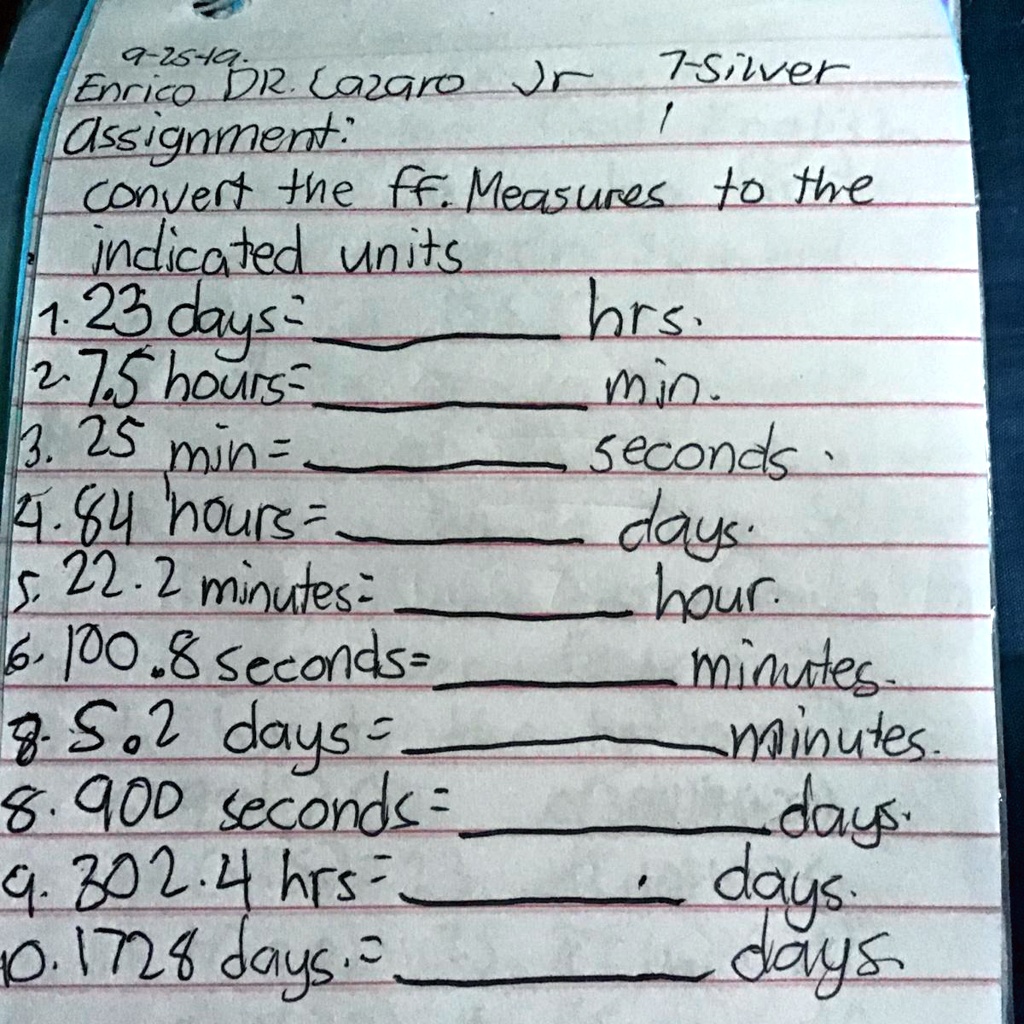 9-25-19.
Enrico DR. Lazaro Jr 7-Silver
Assignment:
convert the ff. Measures to the
indicated units
1. 23 days= ________ hrs.
2. 7.5 hours= ________ min.
3. 25 min = ________ seconds.
4. 84 hours= ________ days.
5. 22.2 minutes= ________ hour.
6. 100.8 seconds= ________ minutes.
8. 5.2 days = ________ minutes.
8. 900 seconds= ________ days.
9. 302.4 hrs= ________ days.
10. 1728 days.= ________ days